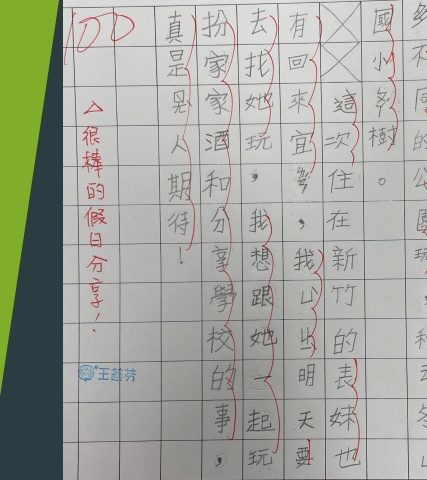 不同的公園玩，
國小 樹。
這次住在新竹的表妹也
有回來宜 ，我 明天要
去找她玩，我想跟她一起玩
扮家家酒和分享學校的事，
真是 人期待！
100
△很棒的假日分享！